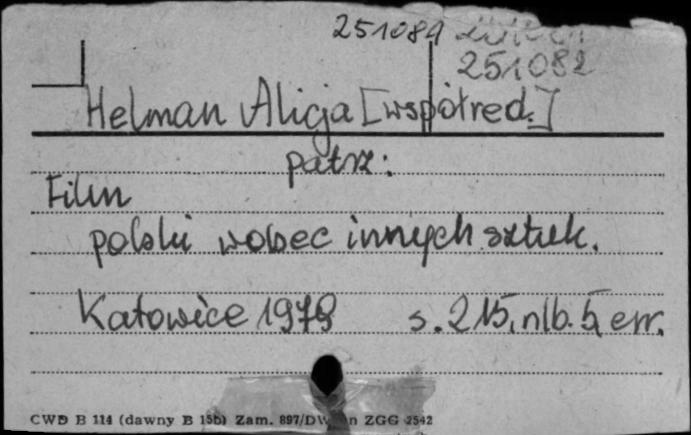 251081
251082
Helman Alicja [współred.]
patrz:
Film
polski wobec innych sztuk.
Katowice 1979 s. 215, nlb. 5, err.
CWD B 114 (dawny B 15b) Zam. 897/DW ZGG 2542